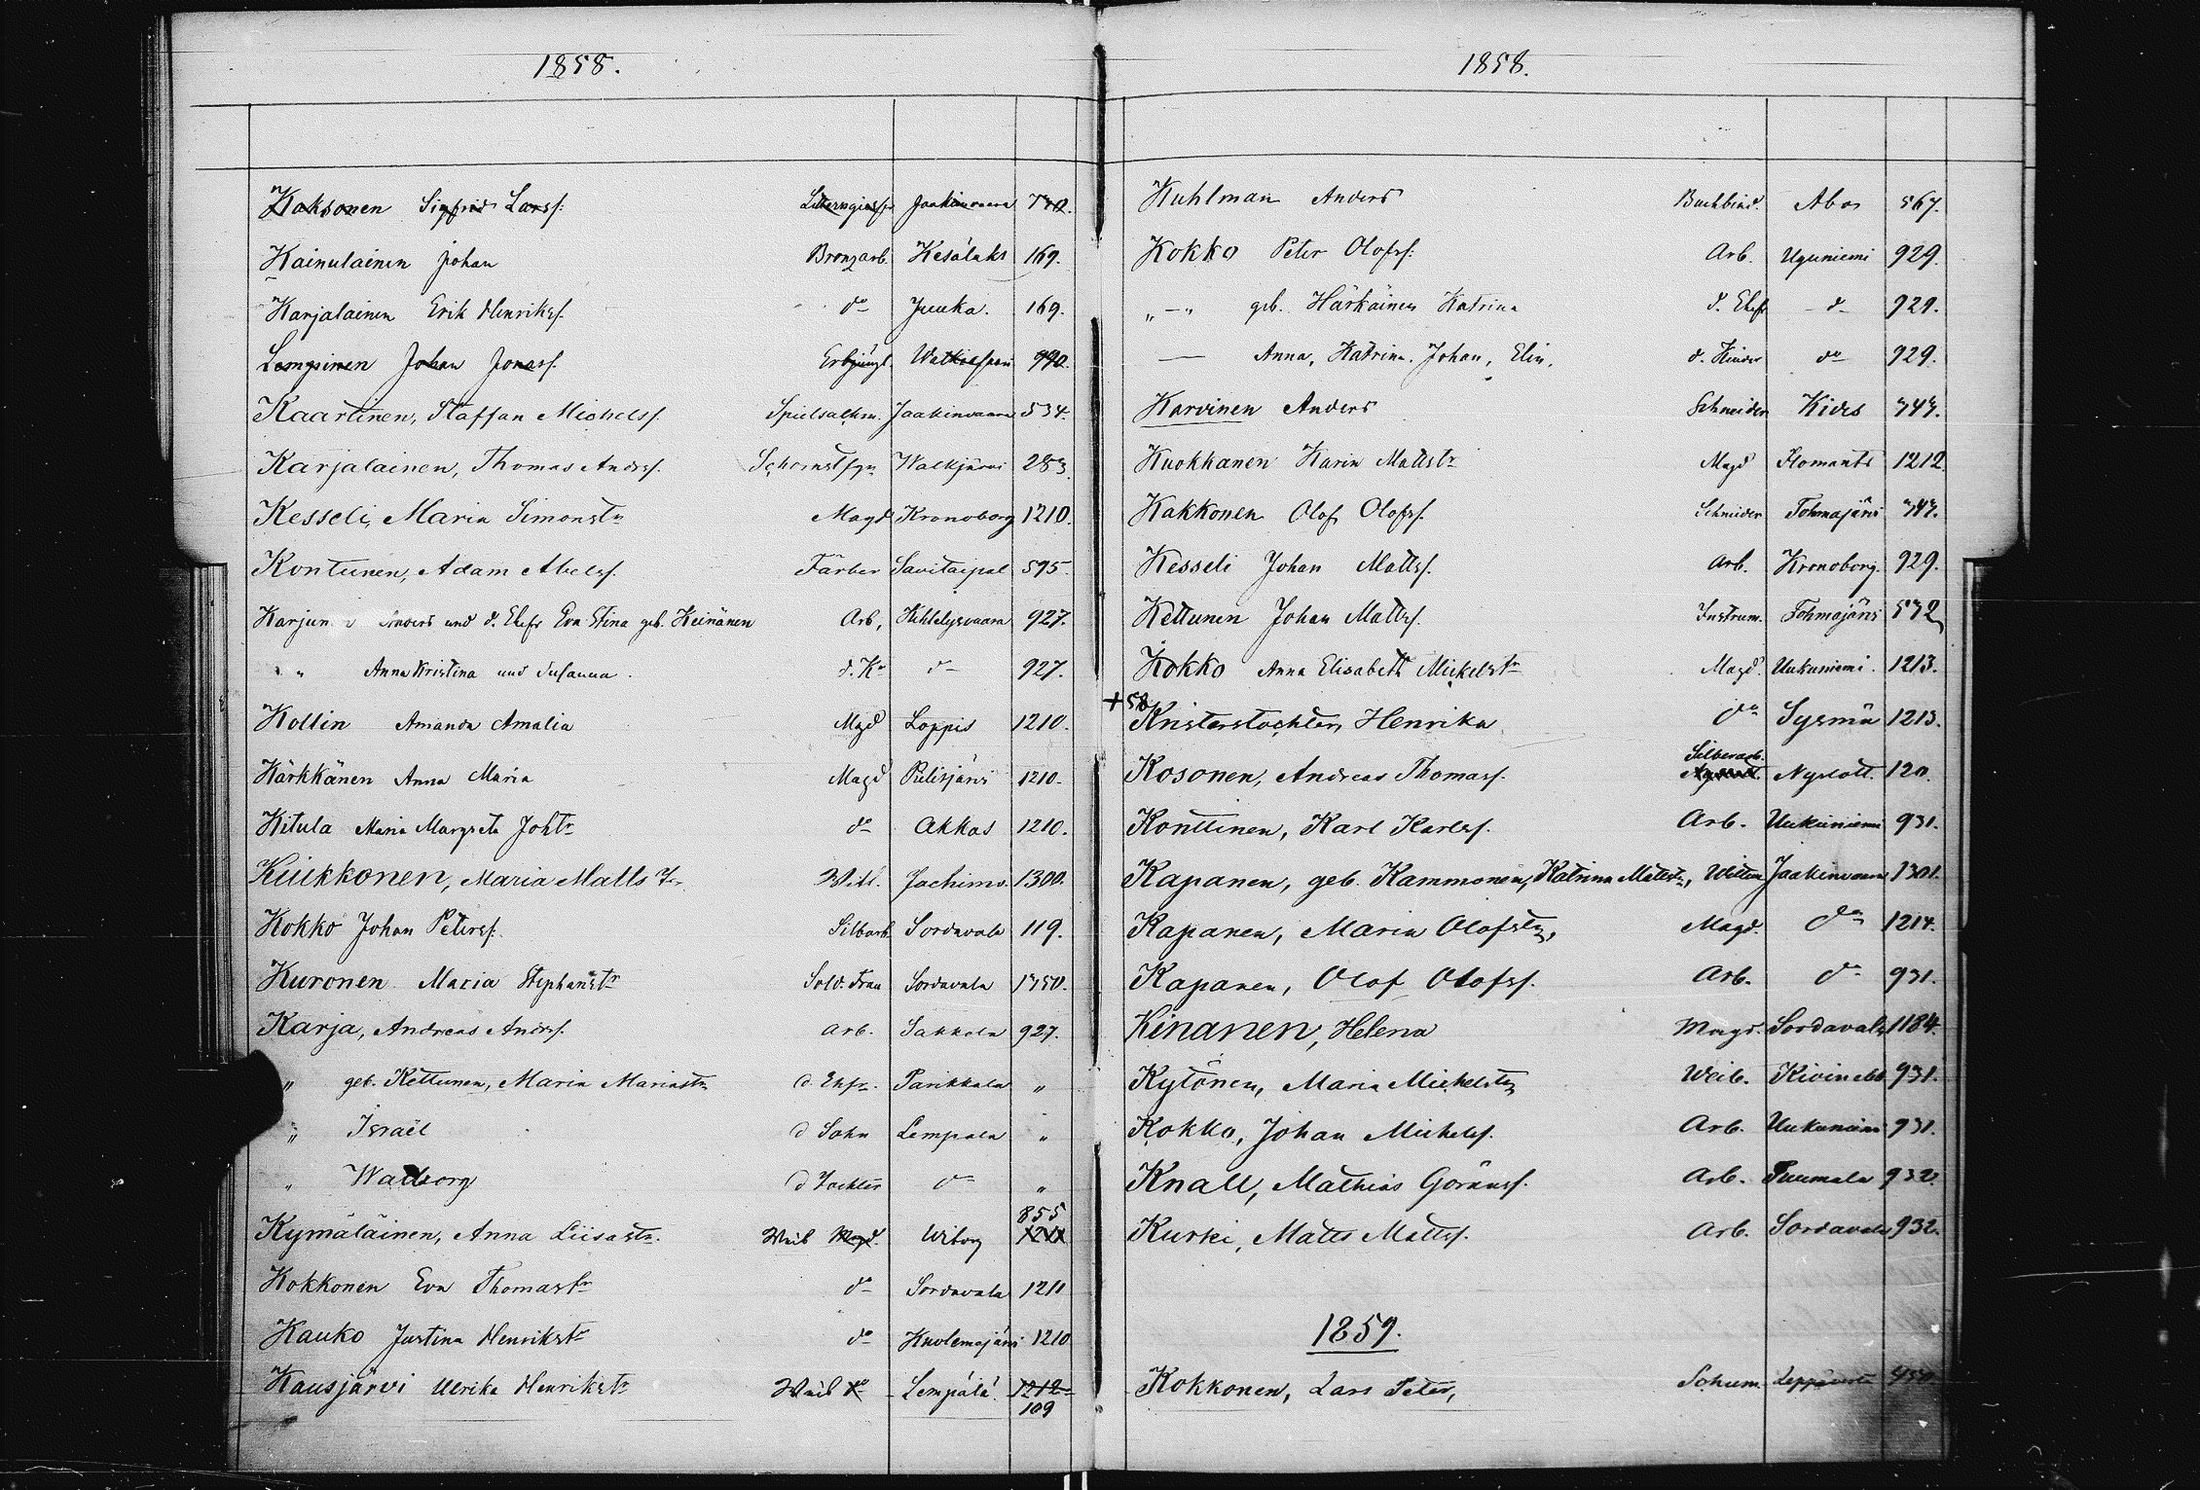 1858.
Kaksonen Sigfrid Larsf. Jaakimvaara 730.
Kainulainen Johan Bronzarb. Kesälaks 169.
Karjalainen Erik Henriksf. do Juuka. 169.
Lempinen Johan Jonasf. 990.
Kaartinen, Staffan Michelsf. Jaakimvaara 534.
Karjalainen, Thomas Andersf. Schornstfgr. Walkjärvi 283
Kesseli, Maria Simonstr Magd Kronoborg 1210.
Kontunen, Adam Abelsf. Färber Savitaipal 595.
Anders und d. Ehefr Eva Stina geb. Heinänen Arb, Kihtelysvaara 927.
" Anna Kristina und Susanna. d. Kr do 927.
Kollin Amanda Amalia Magd Loppis 1210.
Härkkänen Anna Maria Magd Pielisjärvi 1210.
Kitula Maria Margreta Johtr do Akkas 1210.
Kiukkonen, Maria Matts Tr. Weib. Jachimv. 1300.
Kokko Johan Petersf. Silbarb. Sordavala 119.
Kuronen Maria Stephanstr Sold. Frau Sordavala 1350.
Karja, Andreas Andsf. Arb. Sakkola 927.
" geb. Kettunen, Maria Mariastr d. Ehfr. Parikkala "
" Israël d Sohn Lempala "
" Walborg d Tochter do "
Kymäläinen, Anna Liisastr. Weib Magd. Wiborg 855
Kokkonen Eva Thomastr do Sordavala 1211
Kauko Justina Henrikstr do Kuolemajärvi 1210
Kausjärvi Ulrika Henrikstr Weib do Lempälä. 1212
109
1858.
Kuhlman Anders Buchbind. Abo 567.
Kokko Peter Olofsf. Arb. Uguniemi 929.
" — " geb. Härkäinen Katrina d. Ehefr d 929.
— Anna, Katrina, Johan, Elin. d. Kinder do 929.
Karvinen Anders Schneider Kides 747.
Kuokkanen Karin Mattstr Magd Ilomants 1212
Kakkonen Olof Olofsf. Schneider Tohmajärvi 747.
Kesseli Johan Mattsf. Arb. Kronoborg. 929.
Kettunen Johan Mattsf. Instrum. Tohmajärvi 532
Kokko Anna Elisabeth Mickelstr Magd. Uukuniemi. 1213.
+58
Kristerstochter, Henrika do Sysmä 1213.
Silberarb.
Kosonen, Andreas Thomasf. Nyslott. 120.
Konttinen, Karl Karlsf. Arb. Uukuniemi 931.
Kapanen, geb. Kammonen, Katrina Mattstr, Wittwe Jaakimvaara 1301.
Kapanen, Maria Olofstr, Magd. do 1214.
Kapanen, Olof Olofsf. Arb. do 931.
Kinanen, Helena Magd. Sordavala 1184.
Kytönen, Maria Michelstr Weib. Kivinebb 931.
Kokko, Johan Michelsf. Arb. Uukuniemi 931.
Knall, Mathias Göransf. Arb. Puumala 932.
Kurki, Matts Mattsf. Arb. Sordavala 932.
1859.
Kokkonen, Lars Peter, Schum. Leppävirta 450.